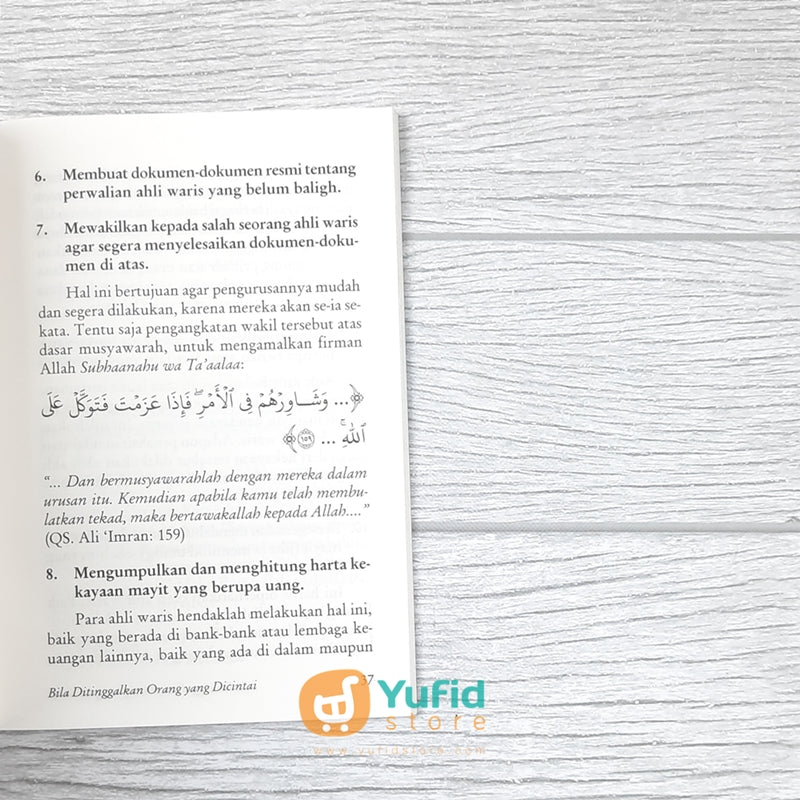 6. Membuat dokumen-dokumen resmi tentang
perwalian ahli waris yang belum baligh.
7. Mewakilkan kepada salah seorang ahli waris
agar segera menyelesaikan dokumen-doku-
men di atas.
Hal ini bertujuan agar pengurusannya mudah
dan segera dilakukan, karena mereka akan se-ia se-
kata. Tentu saja pengangkatan wakil tersebut atas
dasar musyawarah, untuk mengamalkan firman
Allah Subhaanahu wa Ta'aalaa:
﴿... وَشَاوِرْهُمْ فِى ٱلْأَمْرِ ۖ فَإِذَا عَزَمْتَ فَتَوَكَّلْ عَلَى
ٱللَّهِ ۚ ... ١٥٩﴾
“... Dan bermusyawarahlah dengan mereka dalam
urusan itu. Kemudian apabila kamu telah membu-
latkan tekad, maka bertawakallah kepada Allah....”
(QS. Ali ‘Imran: 159)
8. Mengumpulkan dan menghitung harta ke-
kayaan mayit yang berupa uang.
Para ahli waris hendaklah melakukan hal ini,
baik yang berada di bank-bank atau lembaga ke-
uangan lainnya, baik yang ada di dalam maupun
Bila Ditinggalkan Orang yang Dicintai 37
Yufid
store
www.yufidstore.com